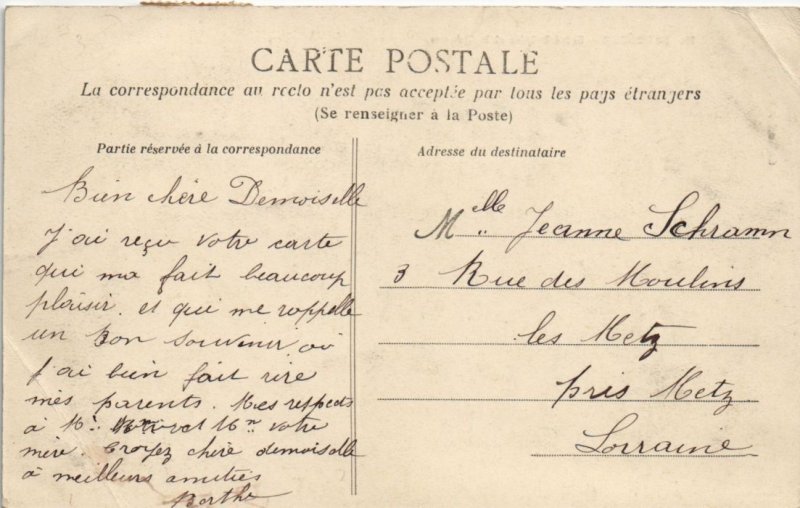 CARTE POSTALE
La correspondance au recto n'est pas acceptée par tous les pays étrangers
(Se renseigner à la Poste)
Partie réservée à la correspondance
Bien chère Demoiselle
J'ai reçu votre carte
qui ma fait beaucoup
plaisir. et qui me rappelle
un bon souvenir où
j'ai bien fait rire
mes parents. Mes respects
à Mr. et Mme votre
mère. Croyez chère demoiselle
à meilleurs amitiés
Berthe
Adresse du destinataire
Melle Jeanne Schramn
3 Rue des Moulins
les Metz
près Metz
Lorraine